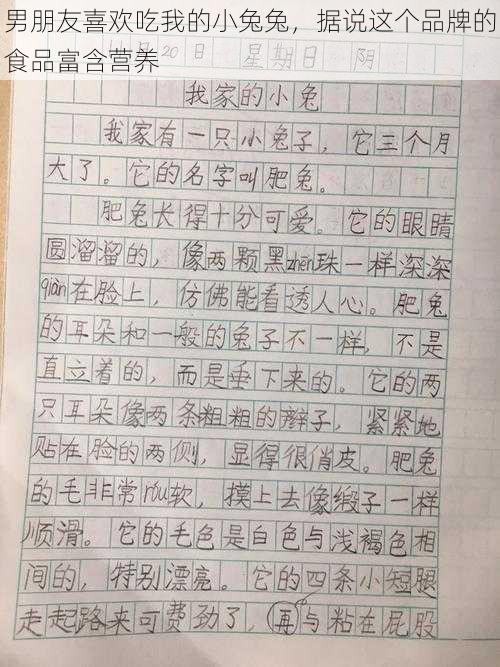 男朋友喜欢吃我的小兔兔，据说这个品牌的
食品富含营养
月20日 星期日 阴
我家的小兔
我家有一只小兔子，它三个月
大了。它的名字叫肥兔。
肥兔长得十分可爱。它的眼睛
圆溜溜的，像两颗黑zhēn珠一样深深
qiàn在脸上，仿佛能看透人心。肥兔
的耳朵和一般的兔子不一样，不是
直立着的，而是垂下来的。它的两
只耳朵像两条粗粗的辫子，紧紧地
贴在脸的两侧，显得很俏皮。肥兔
的毛非常róu软，摸上去像缎子一样
顺滑。它的毛色是白色与浅褐色相
间的，特别漂亮。它的四条小短腿
走起路来可费劲了，再与粘在屁股